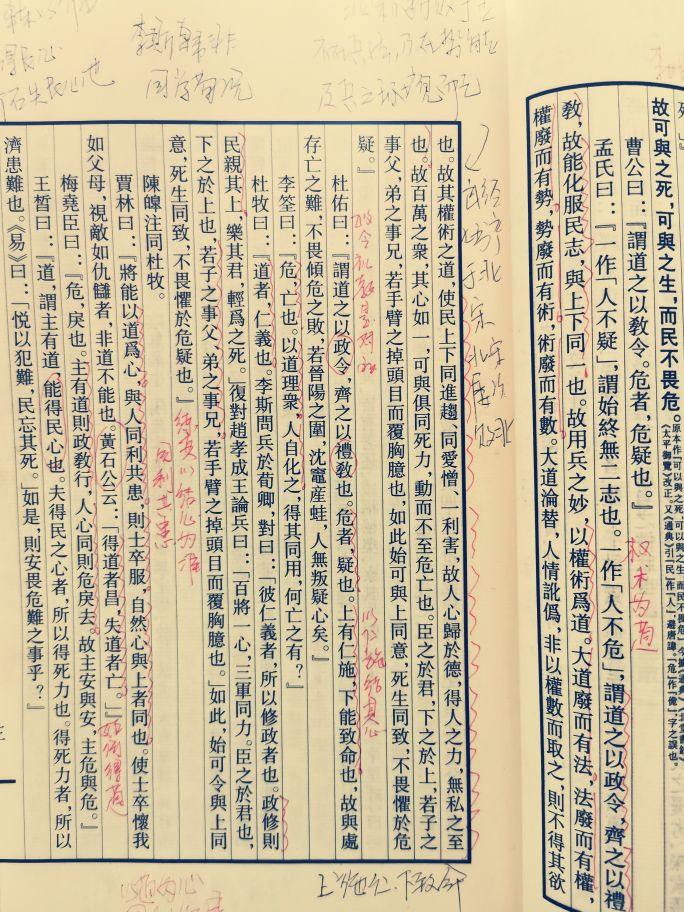 死。』
故可與之死，可與之生，而民不畏危。
原本作「可以與之死，可以與之生，而民不畏危」，今據《通典》《北堂書鈔》
《太平御覽》改正。又《通典》引「民」作「人」，避唐諱。「危」作「佹」，字之誤也。
曹公曰：『謂道之以教令。危者，危疑也。』
孟氏曰：『一作「人不疑」，謂始終無二志也。一作「人不危」，謂道之以政令，齊之以禮
教，故能化服民志，與上下同一也。故用兵之妙，以權術爲道。大道廢而有法，法廢而有權，
權廢而有勢，勢廢而有術，術廢而有數。大道淪替，人情訛僞，非以權數而取之，則不得其欲
权术为道
也。故其權術之道，使民上下同進趨、同愛憎、一利害，故人心歸於德，得人之力，無私之至
也。故百萬之衆，其心如一，可與俱同死力，動而不至危亡也。臣之於君，下之於上，若子之
事父、弟之事兄，若手臂之捍頭目而覆胸臆也，如此始可與上同意，死生同致，不畏懼於危
疑。』
杜佑曰：『謂道之以政令，齊之以禮教也。危者，疑也。上有仁施，下能致命也，故與處
存亡之難，不畏傾危之敗，若晉陽之圍，沈竈産蛙，人無叛疑心矣。』
李筌曰：『危，亡也。以道理衆，人自化之，得其同用，何亡之有？』
杜牧曰：『道者，仁義也。李斯問兵於荀卿，對曰：「彼仁義者，所以修政者也。政修則
民親其上，樂其君，輕爲之死。」復對趙孝成王論兵曰：「百將一心，三軍同力。臣之於君也，
下之於上也，若子之事父、弟之事兄，若手臂之捍頭目而覆胸臆也。」如此，始可令與上同
意，死生同致，不畏懼於危疑也。』
陳皥注同杜牧。
賈林曰：『將能以道爲心，與人同利共患，則士卒服，自然心與上者同也。使士卒懷我
如父母，視敵如仇讎者，非道不能也。黃石公云：「得道者昌，失道者亡。」』
梅堯臣曰：『危，戾也。主有道則政教行，人心同則危戾去。故主安與安，主危與危。』
王晳曰：『道，謂主有道，能得民心也。夫得民之心者，所以得死力也。得死力者，所以
濟患難也。《易》曰：「悦以犯難，民忘其死。」如是，則安畏危難之事乎？』
同利共患